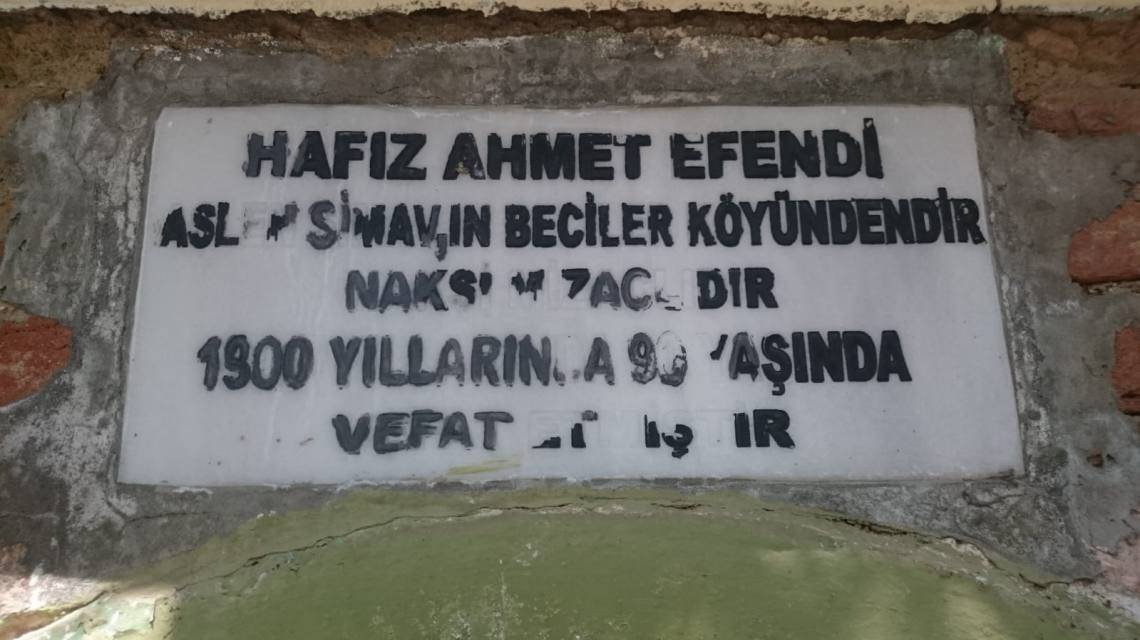 HAFIZ AHMET EFENDİ
ASLEN SİMAV,IN BECİLER KÖYÜNDENDİR
NAKŞİ MİZAÇLIDIR
1900 YILLARINDA 90 YAŞINDA
VEFAT ETMİŞTİR